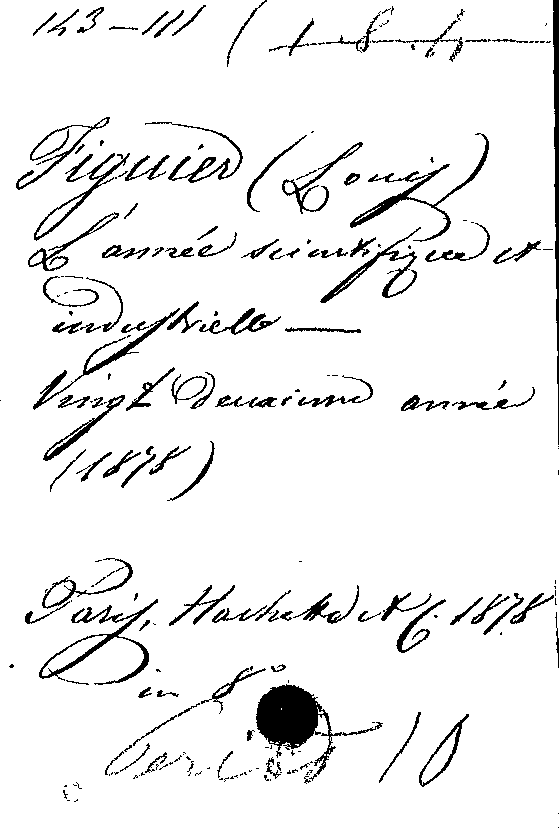 143-111 (
Figuier (Louis)
L'année scientifique et
industrielle —
Vingt deuxième année
(1878)
Paris, Hachette et C. 1878
in 8°
Period 10